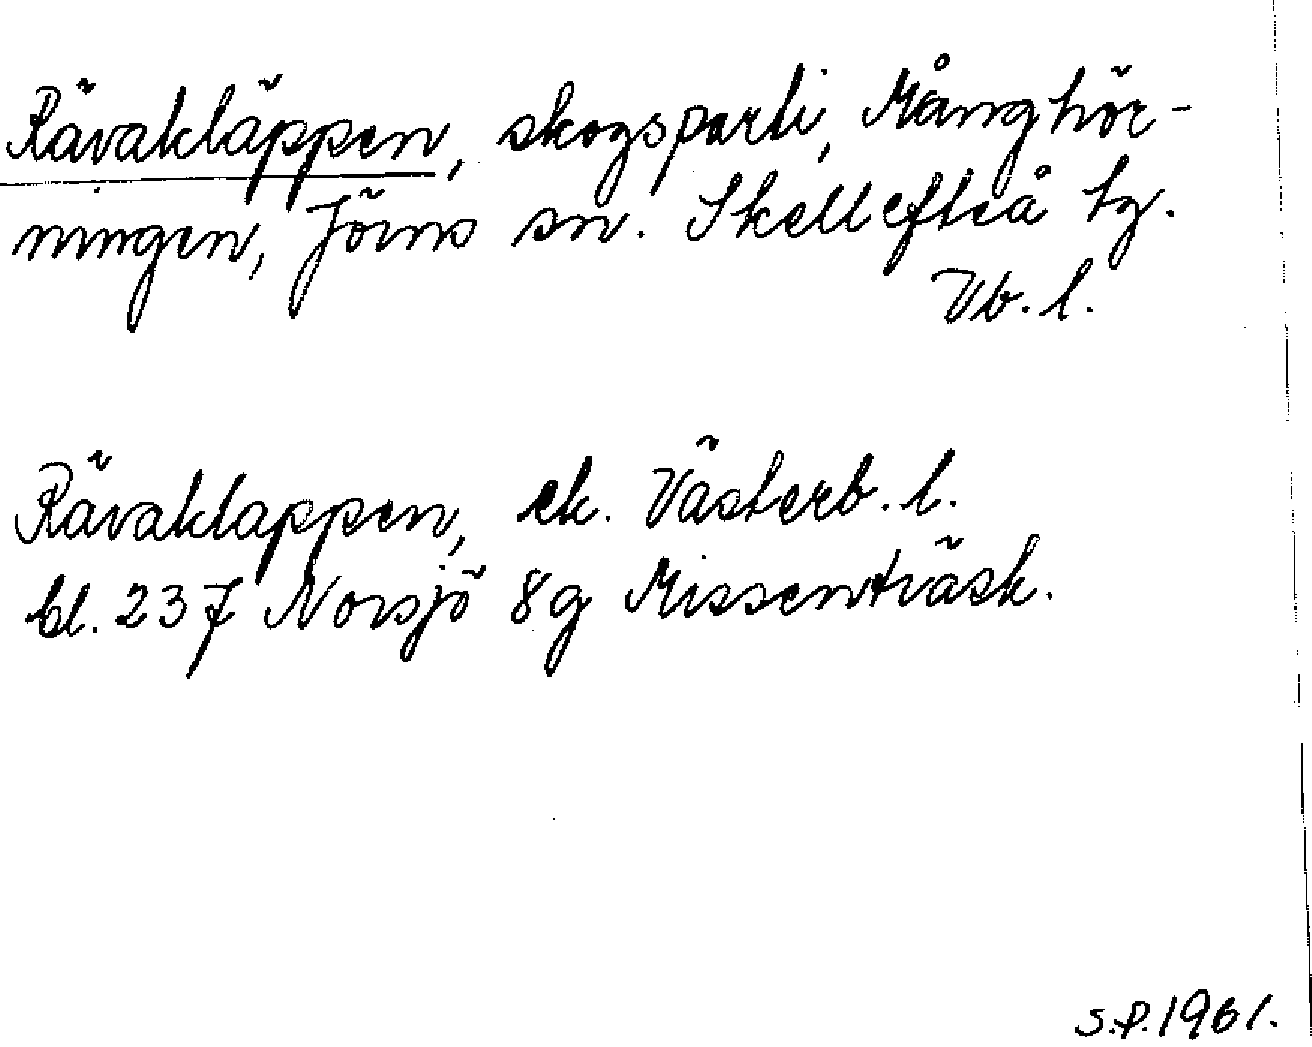 Rävakläppen, skogsparti, Månghör-
ningen, Jörns sn. Skellefteå tg.
Vb. l.
Rävaklappen, ek. Västerb. l.
bl. 237 Norsjö 8g Missenträsk.
S.P. 1961.